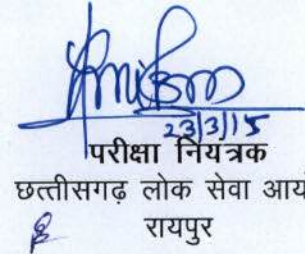 23/3/15
परीक्षा नियंत्रक
छत्तीसगढ़ लोक सेवा
रायपुर